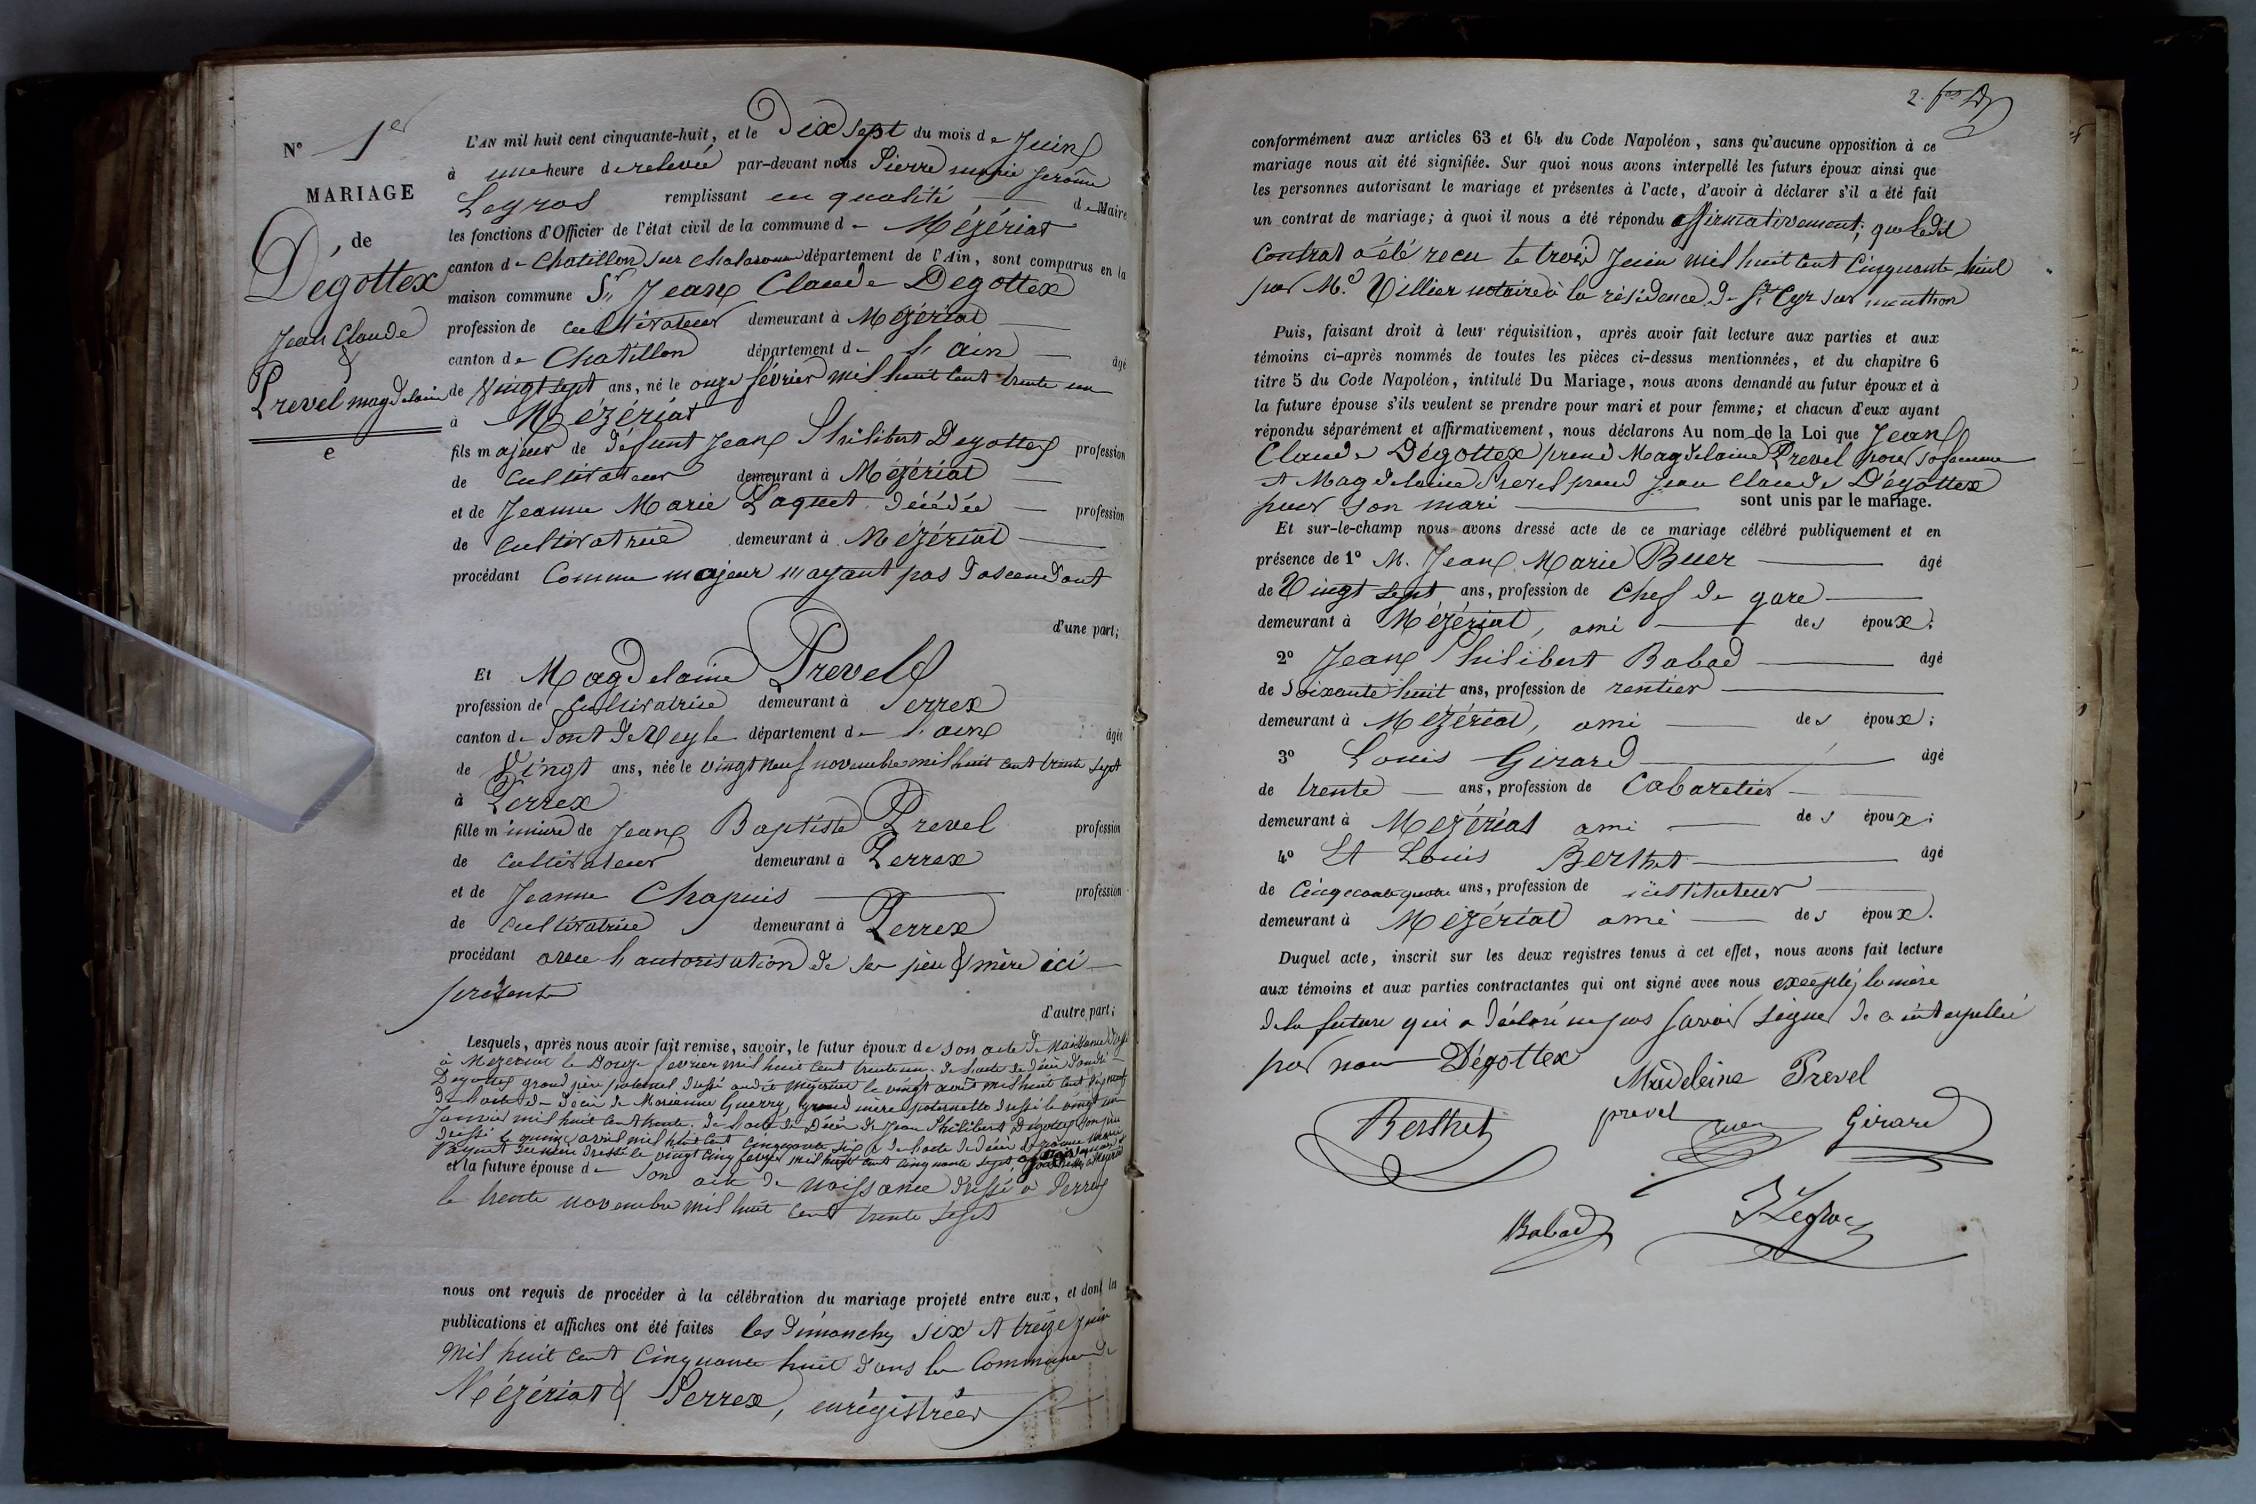 N° 1er
MARIAGE
de
Dégottex
Jean Claude
&
Prevel magdelaine
e
L'AN mil huit cent cinquante-huit, et le Dix sept du mois de Juin
à une heure de relevée par-devant nous Pierre marie Jerôme
Legros remplissant en qualité de Maire
les fonctions d'Officier de l'état civil de la commune de Mézériat
canton de Chatillon sur Chalaronne département de l'Ain, sont comparus en la
maison commune Sr Jean Claude Degottex
profession de cultivateur demeurant à Mézériat
canton de Chatillon département de l'ain âgé
de Vingt sept ans, né le onze février mil huit cent trente un
à Mézériat
fils majeur de défunt Jean Philibert Degottex profession
de cultivateur demeurant à Mézériat
et de Jeanne Marie Paquet décédée profession
de cultivatrice demeurant à Mézériat
procédant Comme majeur n'ayant pas d'ascendant
d'une part;
Et Magdelaine Prevel
profession de cultivatrice demeurant à Perrex
canton de Pont de Veyle département de l'ain âgée
de Vingt ans, née le vingt neuf novembre mil huit cent trente sept
à Perrex
fille mineure de Jean Baptiste Prevel profession
de cultivateur demeurant à Perrex
et de Jeanne Chapuis profession
de cultivatrice demeurant à Perrex
procédant avec l'autorisation de ses père & mère ici
présents
d'autre part;
Lesquels, après nous avoir fait remise, savoir, le futur époux de son acte de Naissance dressé
à Mézériat le Douze fevrier mil huit cent trente un. de l'acte de décès
Degottex grand père paternel dressé audit Mézériat le vingt avril mil huit cent
de l'acte de décès de Marianne Guerry, grand mère paternelle dressé le vingt un
Janvier mil huit cent trente. de l'acte de Décès de Jean Philibert Degottex son père
dressé le quinze avril mil huit cent cinquante six & de l'acte de décès de Jeanne Marie
Paquet sa mère dressé le vingt cinq mil huit cent cinquante sept,
et la future épouse de son acte de naissance dressé à Perrex
le trente novembre mil huit cent trente sept
nous ont requis de procéder à la célébration du mariage projeté entre eux, et dont les
publications et affiches ont été faites les dimanches six et treize juin
mil huit cent Cinquante huit dans les Communes de
Mézériat & Perrex, enregistrées
2.
conformément aux articles 63 et 64 du Code Napoléon, sans qu'aucune opposition à ce
mariage nous ait été signifiée. Sur quoi nous avons interpellé les futurs époux ainsi que
les personnes autorisant le mariage et présentes à l'acte, d'avoir à déclarer s'il a été fait
un contrat de mariage; à quoi il nous a été répondu affirmativement; que ledit
Contrat a été recu le trois Juin mil huit cent Cinquante huit
par Me Villier notaire à la résidence de St Cyr sur menthon
Puis, faisant droit à leur réquisition, après avoir fait lecture aux parties et aux
témoins ci-après nommés de toutes les pièces ci-dessus mentionnées, et du chapitre 6
titre 5 du Code Napoléon, intitulé Du Mariage, nous avons demandé au futur époux et à
la future épouse s'ils veulent se prendre pour mari et pour femme; et chacun d'eux ayant
répondu séparément et affirmativement, nous déclarons Au nom de la Loi que Jean
Claude Dégottex prend Magdelaine Prevel pour sa femme
et Magdelaine Prevel prend Jean Claude Dégottex
pour son mari sont unis par le mariage.
Et sur-le-champ nous avons dressé acte de ce mariage célébré publiquement et en
présence de 1° M. Jean Marie Buer âgé
de Vingt sept ans, profession de Chef de gare
demeurant à Mézériat, ami des époux;
2° Jean Philibert Babad âgé
de soixante huit ans, profession de rentier
demeurant à Mézériat, ami des époux;
3° Louis Girard âgé
de trente ans, profession de Cabaretier
demeurant à Mézériat ami des époux;
4° Et Louis Berthet âgé
de Cinquante quatre ans, profession de instituteur
demeurant à Mézériat ami des époux.
Duquel acte, inscrit sur les deux registres tenus à cet effet, nous avons fait lecture
aux témoins et aux parties contractantes qui ont signé avec nous excepté la mère
de la future qui a déclaré ne pas savoir signer de ce interpellée
par nous Dégottex
Madeleine Prevel
Berthet prevel Buer Girard
Babad JLegros